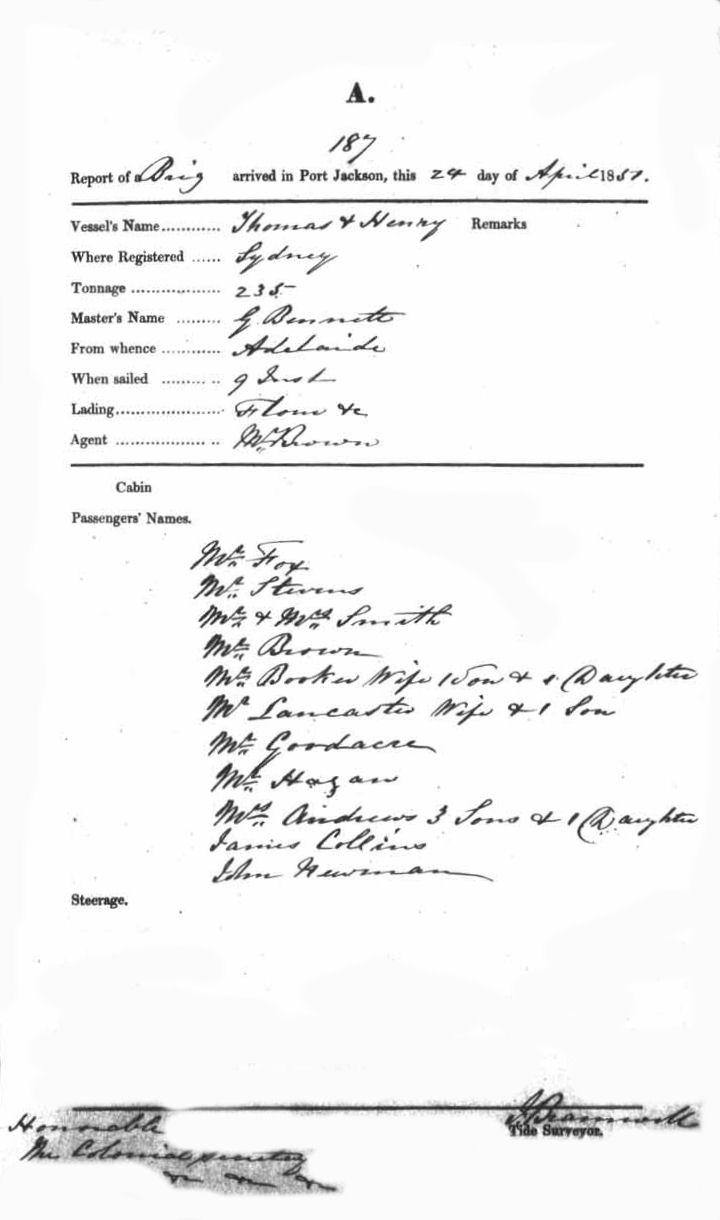 A.
187
Report of a Brig arrived in Port Jackson, this 24 day of April 1851.
Vessel's Name............ Thomas & Henry Remarks
Where Registered ...... Sydney
Tonnage .................. 235
Master's Name ......... G. Bennett
From whence ............ Adelaide
When sailed ......... .. 9 Inst
Lading...................... Flour &c
Agent .................. .. Mr. Brown
Cabin
Passengers' Names.
Mr. Fox
Mr. Stevens
Mr. & Mrs Smith
Mr. Brown
Mr. Booker Wife 1 Son & 1 Daughter
Mr Lancaster Wife & 1 Son
Mr. Goodacre
Mr. Hagan
Mrs. Andrews 3 Sons & 1 Daughter
James Collins
John Newman
Steerage.
Bramwell
Tide Surveyor.
Honorable
The Colonial Secretary